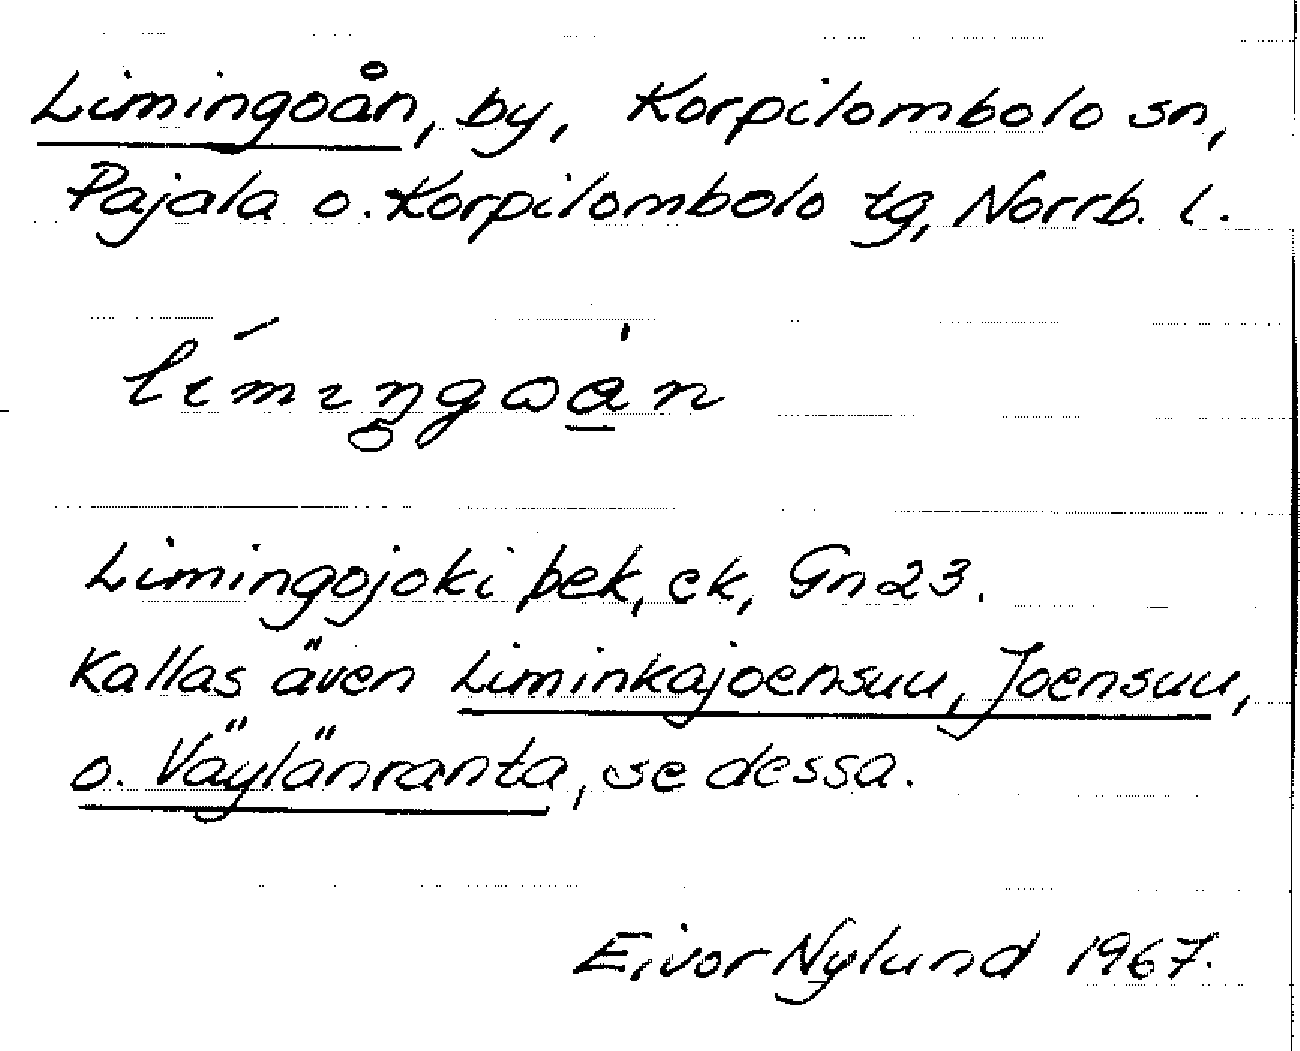 Limingoån, by, Korpilombolo sn,
Pajala o. Korpilombolo tg, Norrb. l.
Limingojoki bek, ek, Gn 23.
Kallas även Liminkajoensuu, Joensuu,
o. Väylänranta, se dessa.
Eivor Nylund 1967.